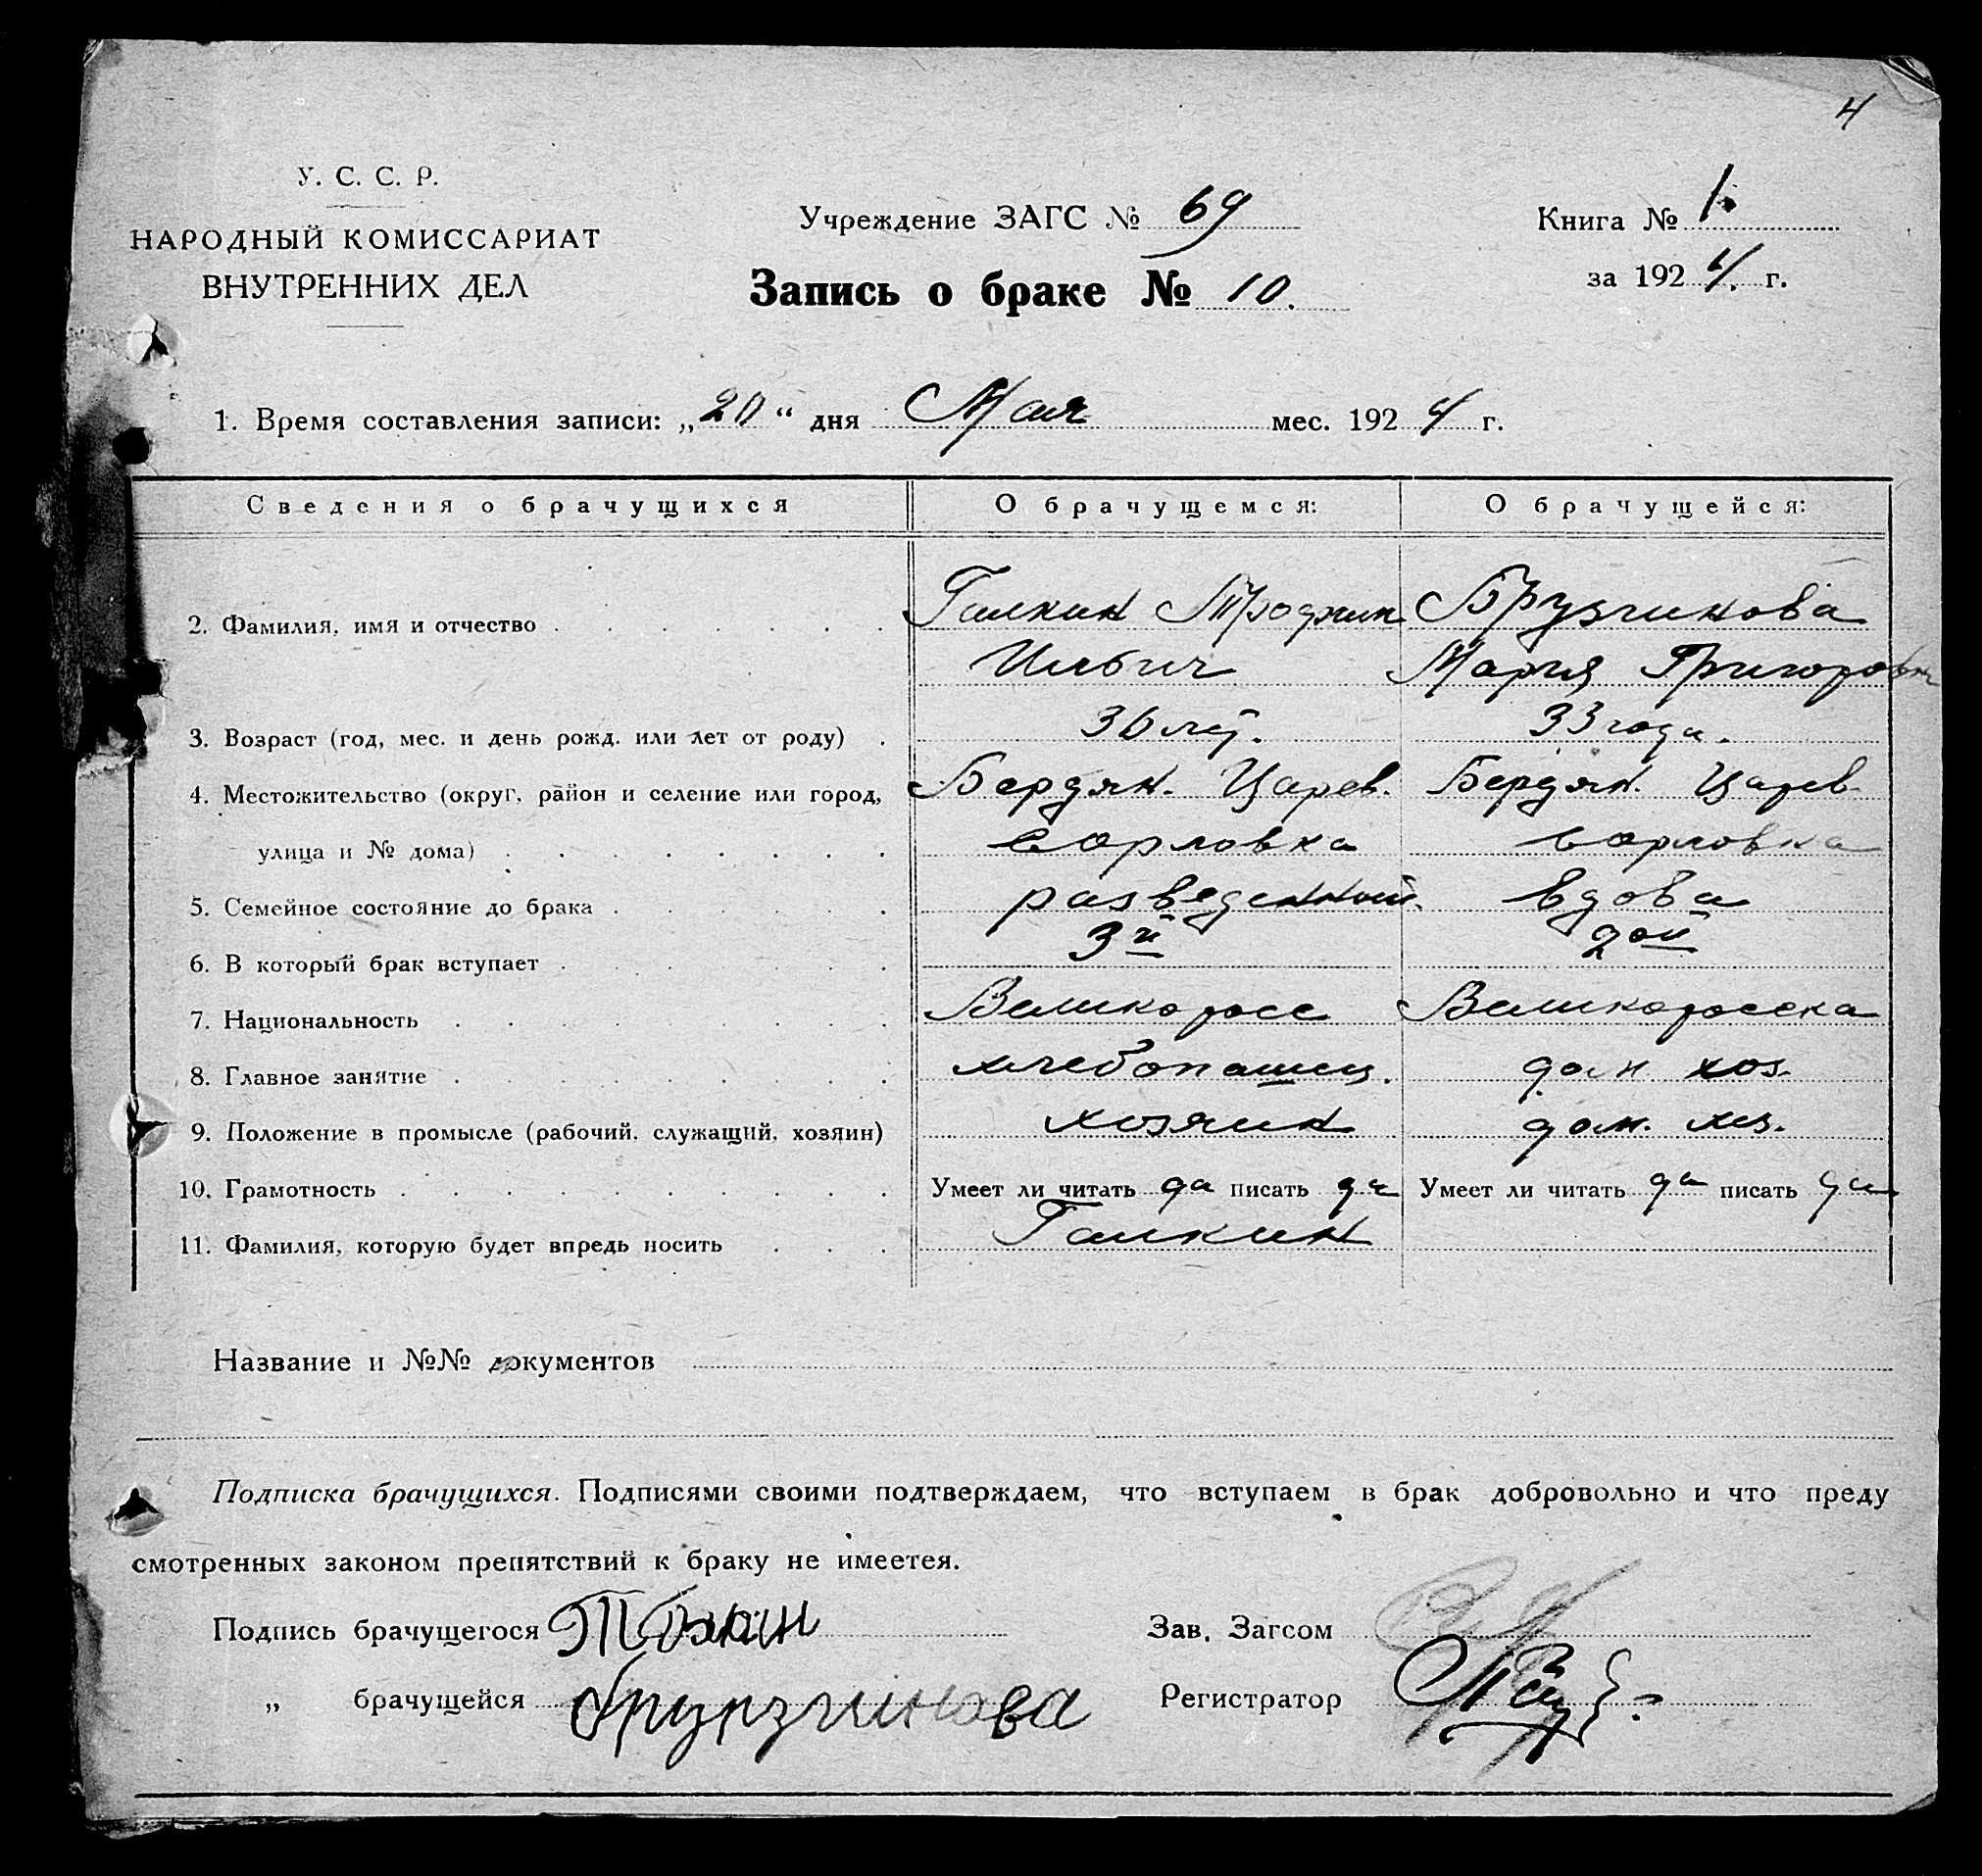 4
У. С. С. Р.
НАРОДНЫЙ КОМИССАРИАТ
ВНУТРЕННИХ ДЕЛ
Учреждение ЗАГС № 69
Книга № 1.
за 1924. г.
Запись о браке № 10.
1. Время составления записи: „20“ дня Мая мес. 1924 г.
Сведения о брачущихся О брачущемся: О брачущейся:
2. Фамилия, имя и отчество Галкин Трофим Брузгинова
Ильич Мария Григоровн
3. Возраст (год, мес. и день рожд. или лет от роду) 36 лет. 33 года.
4. Местожительство (округ, район и селение или город, Бердян. Царев. Бердян. Царев
улица и № дома) Борловка Борловка
5. Семейное состояние до брака разведенный. вдова
6. В который брак вступает 3й 2ой
7. Национальность Великоросс Великоросска
8. Главное занятие хлебопашец. дом хоз.
9. Положение в промысле (рабочий, служащий, хозяин) хозяин дом. хоз.
10. Грамотность Умеет ли читать да писать да Умеет ли читать да писать да
11. Фамилия, которую будет впредь носить Галкин
Название и №№ документов
Подписка брачущихся. Подписями своими подтверждаем, что вступаем в брак добровольно и что преду
смотренных законом препятствий к браку не имеетея.
Подпись брачущегося Зав. Загсом
„ брачущейся Брузгинова Регистратор